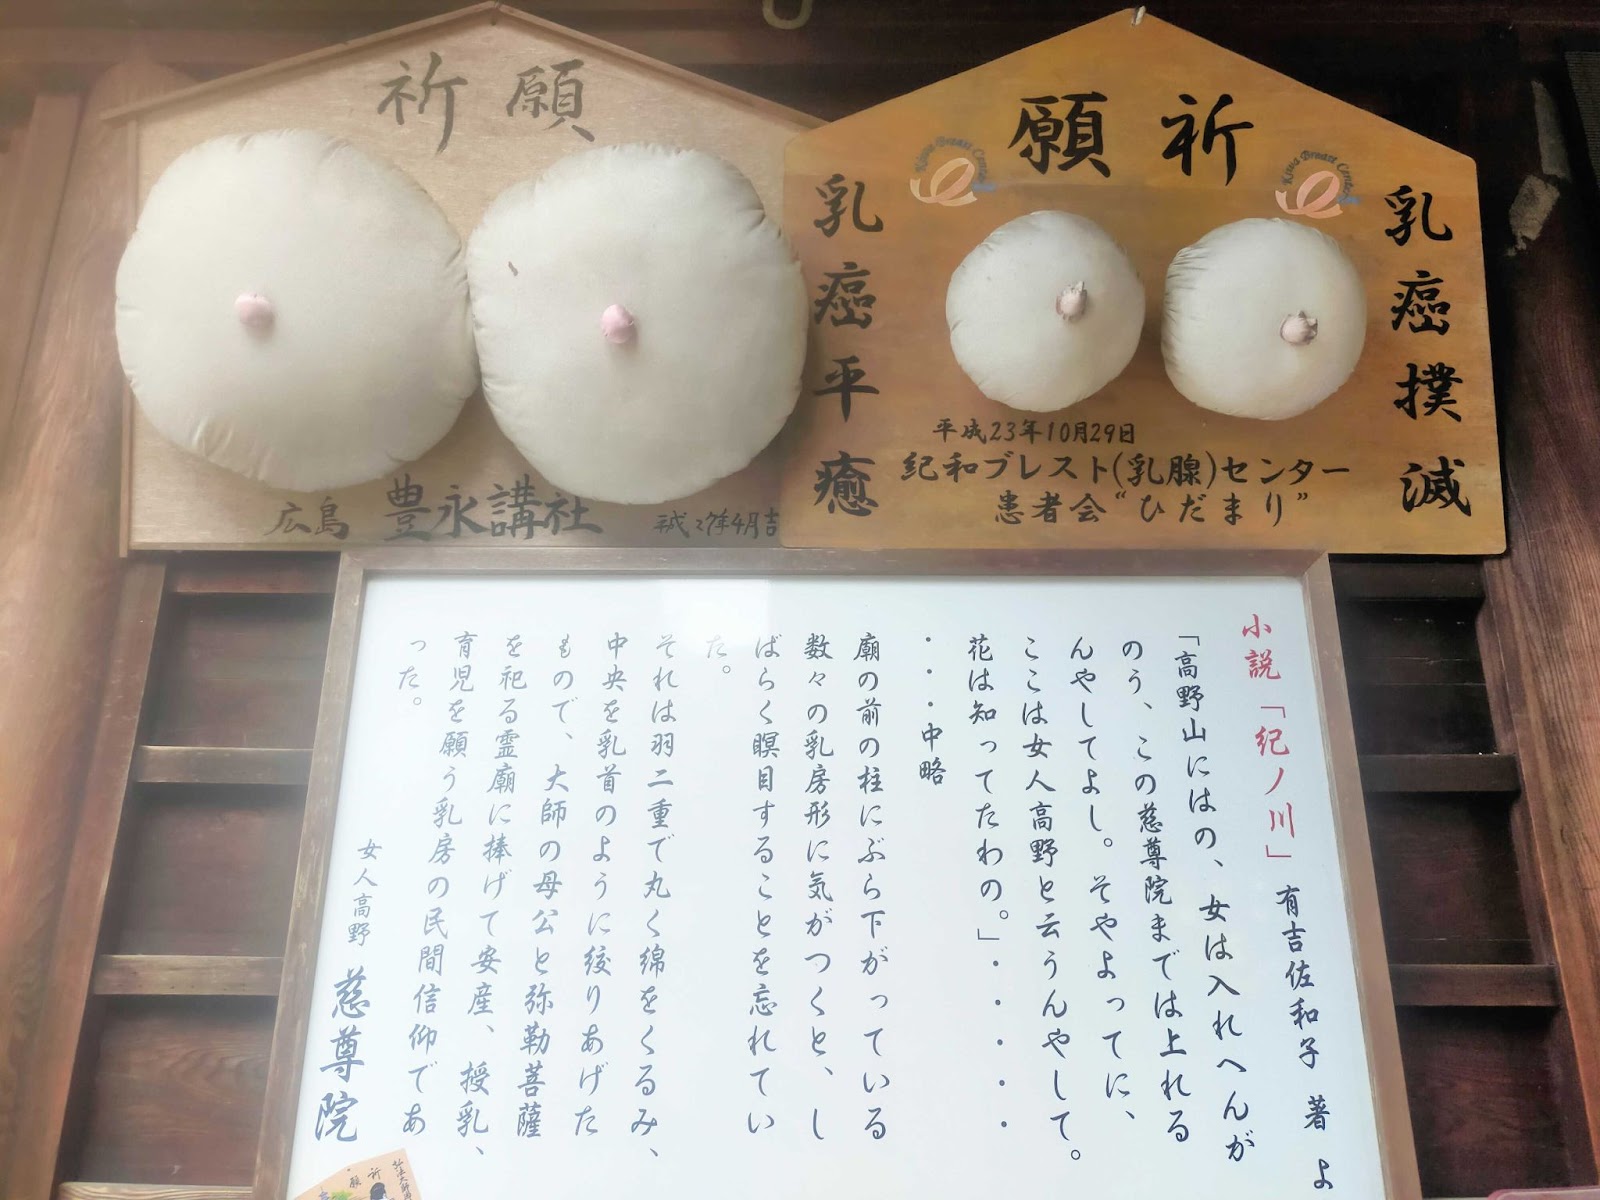 祈願
乳癌平癒
広島 豊永講社
願祈
乳癌撲滅
Kiwa Breast Center
Kiwa Breast Center
平成23年10月29日
紀和ブレスト(乳腺)センター
患者会“ひだまり”
小説「紀ノ川」 有吉佐和子 著 よ
「高野山にはの、女は入れへんが
のう、この慈尊院までは上れる
んやしてよし。そやよってに、
ここは女人高野と云うんやして。
花は知ってたわの。」・・・・・
・・・中略
廟の前の柱にぶら下がっている
数々の乳房形に気がつくと、し
ばらく瞑目することを忘れてい
た。
それは羽二重で丸く綿をくるみ、
中央を乳首のように絞りあげた
もので、大師の母公と弥勒菩薩
を祀る霊廟に捧げて安産、授乳、
育児を願う乳房の民間信仰であ
った。
女人高野 慈尊院
祈
願